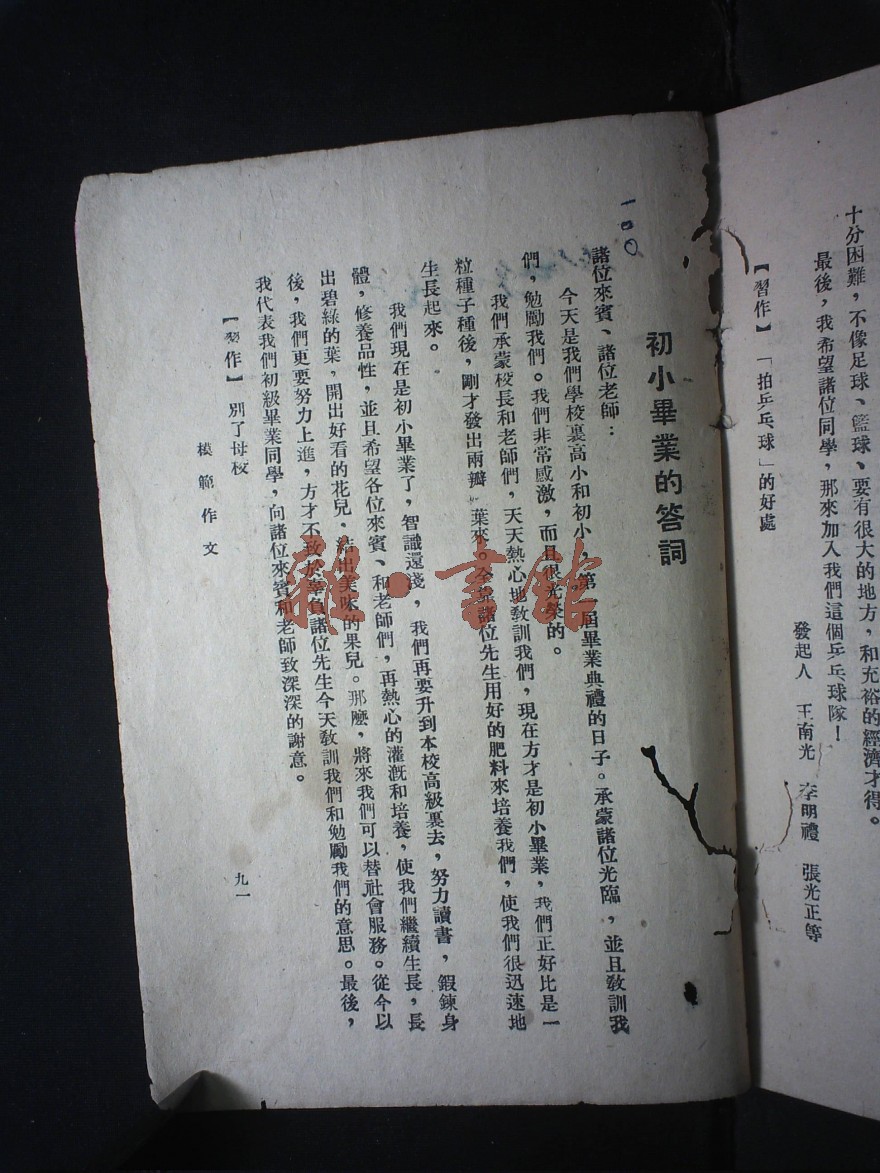 十分困難，不像足球、籃球、要有很大的地方，和充裕的經濟才得。
最後，我希望諸位同學，那來加入我們這個乒乓球隊！
發起人　王南光　李明禮　張光正等
【習作】　「拍乒乓球」的好處
一00
初小畢業的答詞
諸位來賓、諸位老師：
今天是我們學校裏高小和初小　第　屆畢業典禮的日子。承蒙諸位光臨，並且敎訓我
們，勉勵我們。我們非常感激，而且很光榮的。
我們承蒙校長和老師們，天天熱心地敎訓我們，現在方才是初小畢業，我們正好比是一
粒種子種後，剛才發出兩瓣　葉來。全靠諸位先生用好的肥料來培養我們，使我們很迅速地
生長起來。
我們現在是初小畢業了，智識還淺，我們再要升到本校高級裏去，努力讀書，鍛鍊身
體，修養品性，並且希望各位來賓、和老師們，再熱心的灌漑和培養，使我們繼續生長，長
出碧綠的葉，開出好看的花兒，結出美味的果兒。那麽，將來我們可以替社會服務。從今以
後，我們更要努力上進，方才不致於辜負諸位先生今天敎訓我們和勉勵我們的意思。最後，
我代表我們初級畢業同學，向諸位來賓和老師致深深的謝意。
【習作】　別了母校
模範作文
九一
雜·書館